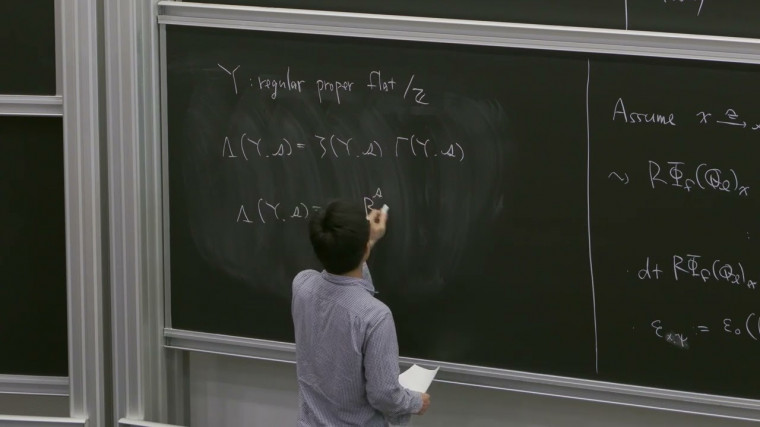 Y : regular proper flat /ℤ
Λ(Y, s) = ζ(Y, s) Γ(Y, s)
Λ(Y, s) =
Assume x
⇝ RΦ_f(ℚ_ℓ)_x
:
· dt RΦ_f(ℚ_ℓ)_x
· ε := ε₀(